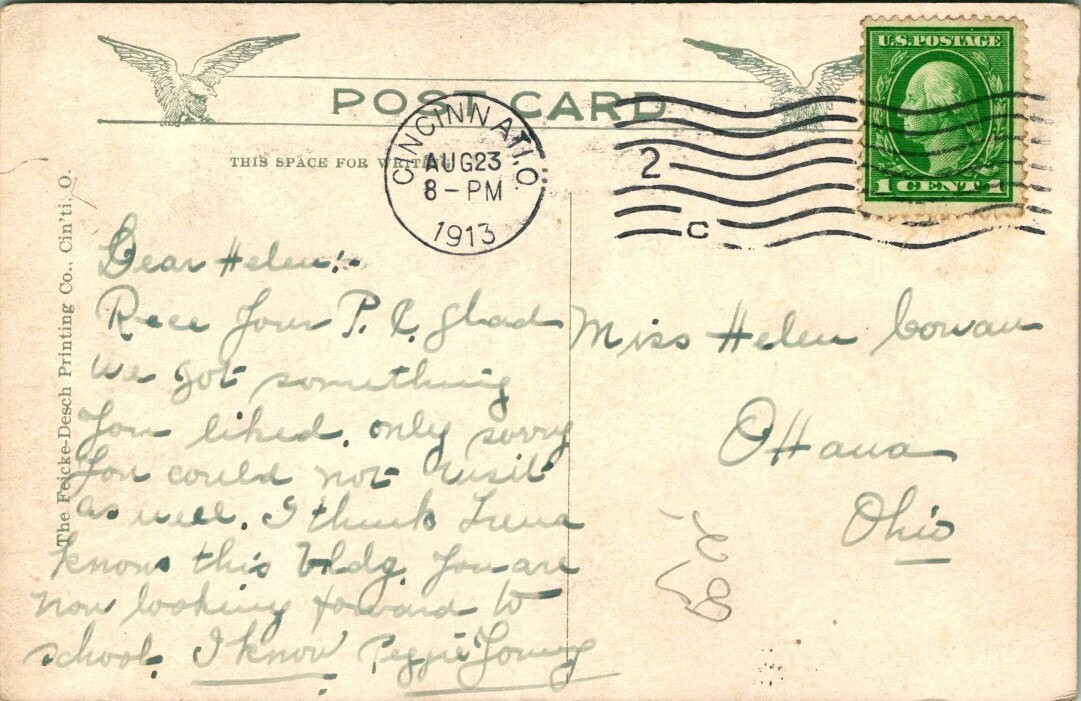 U.S. POSTAGE
1 CENT 1
POST CARD
CINCINNATI, O.
AUG 23
8-PM
1913
2
C
THIS SPACE FOR WRITI
The Feicke-Desch Printing Co., Cin'ti, O.
Dear Helen:-
Rece Your P.C. glad
we got something
You liked, only sorry
You could not visit
as well. I think Irena
knows this bldg. You are
now looking forward to
school. I know Peggie Young
Miss Helen Cowan
Ottawa
Ohio